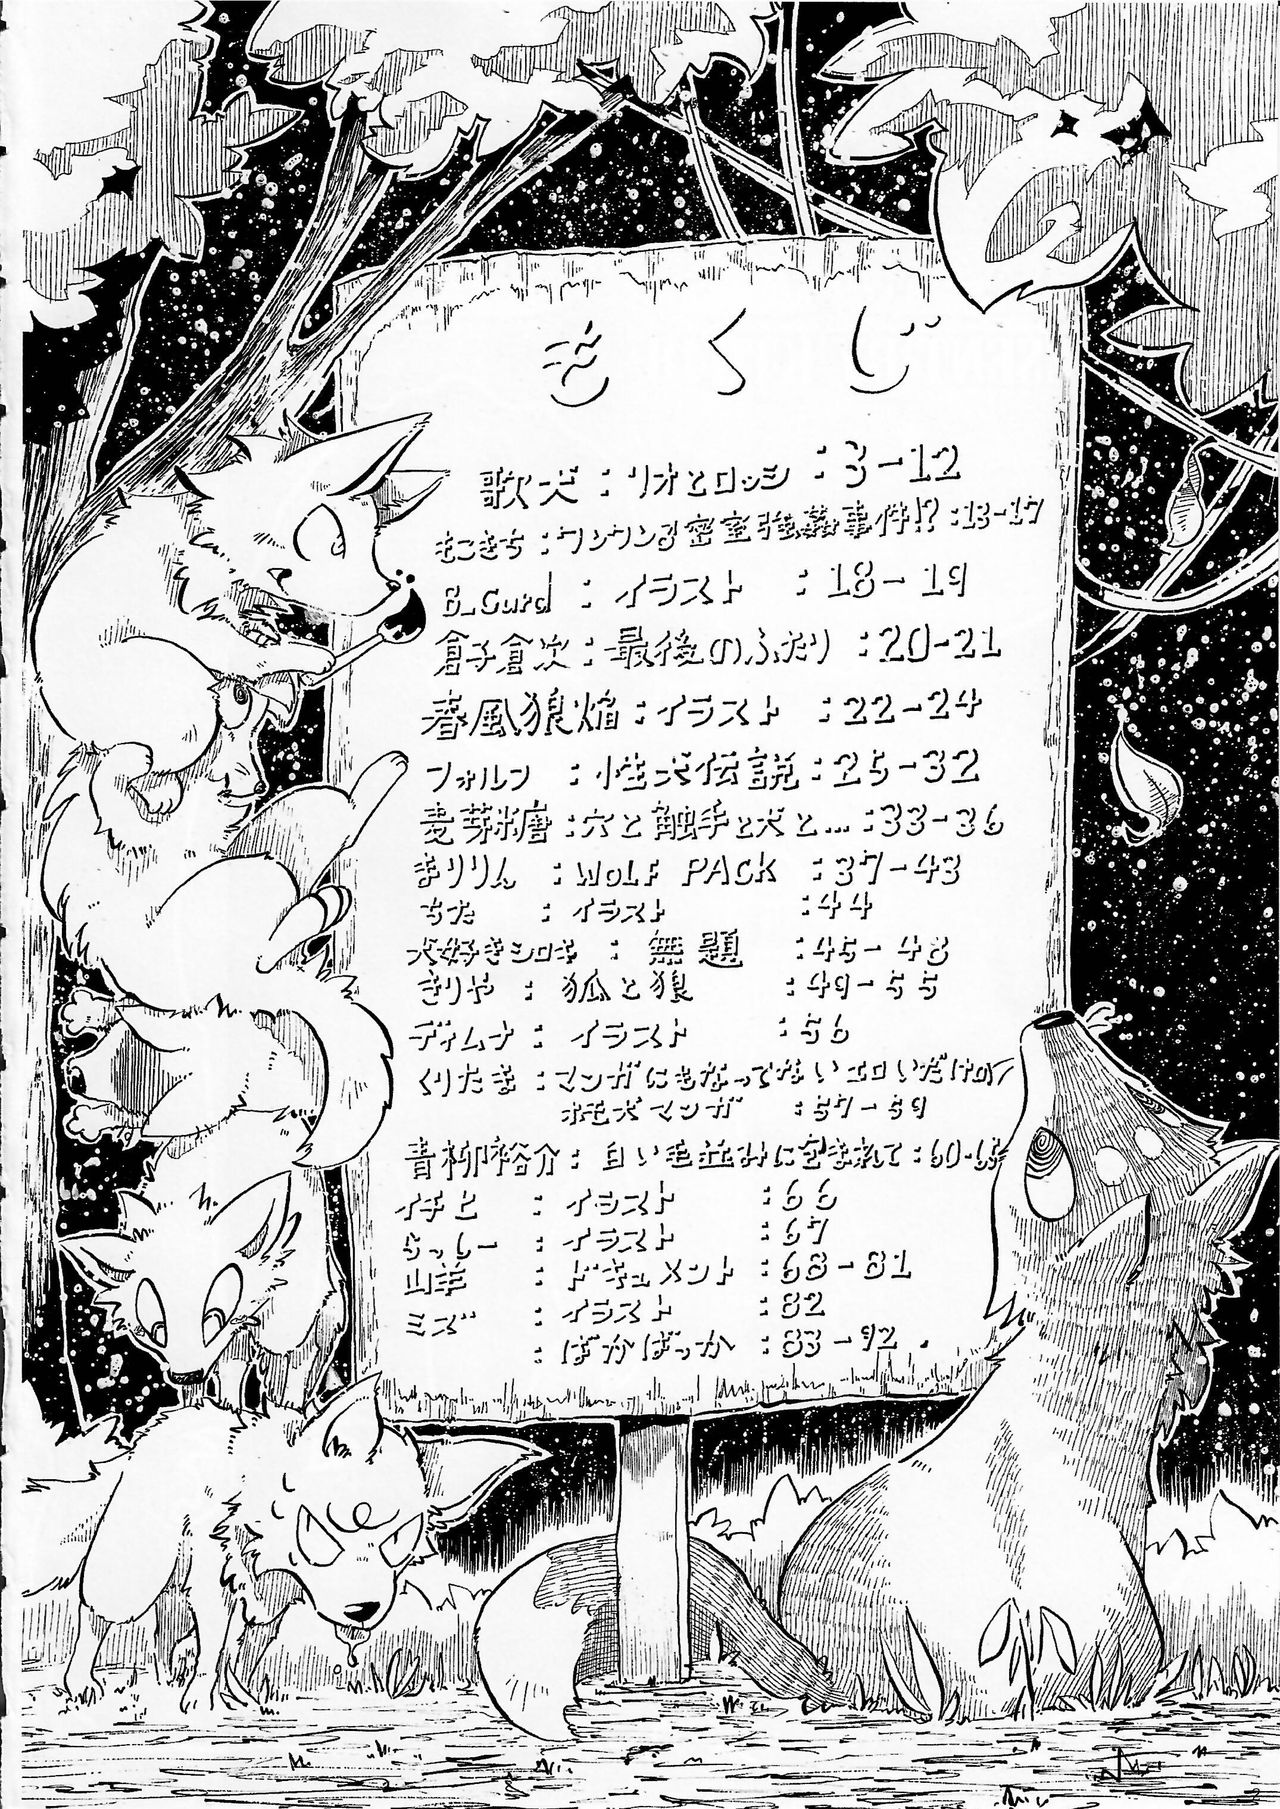 もくじ
歌犬：リオとロッシ：3-12
もこきち：ワンワンる密室強姦事件!?：13-17
B_Curd：イラスト：18-19
倉子倉次：最後のふたり：20-21
春風狼焔：イラスト：22-24
フォルン：性犬伝説：25-32
麦芽糖：穴と触手と犬と…：33-36
まりりん：WOLF PACK：37-43
ちた：イラスト：44
犬好きシロキ：無題：45-48
きりや：狐と狼：49-55
ディムナ：イラスト：56
くりたま：マンガにもなってないエロいだけの
ホモ犬マンガ：57-59
青柳裕介：白い毛並みに包まれて：60-65
イチヒ：イラスト：66
らっしー：イラスト：67
山羊：ドキュメント：68-81
ミズ：イラスト：82
：ばかばっか：83-92.